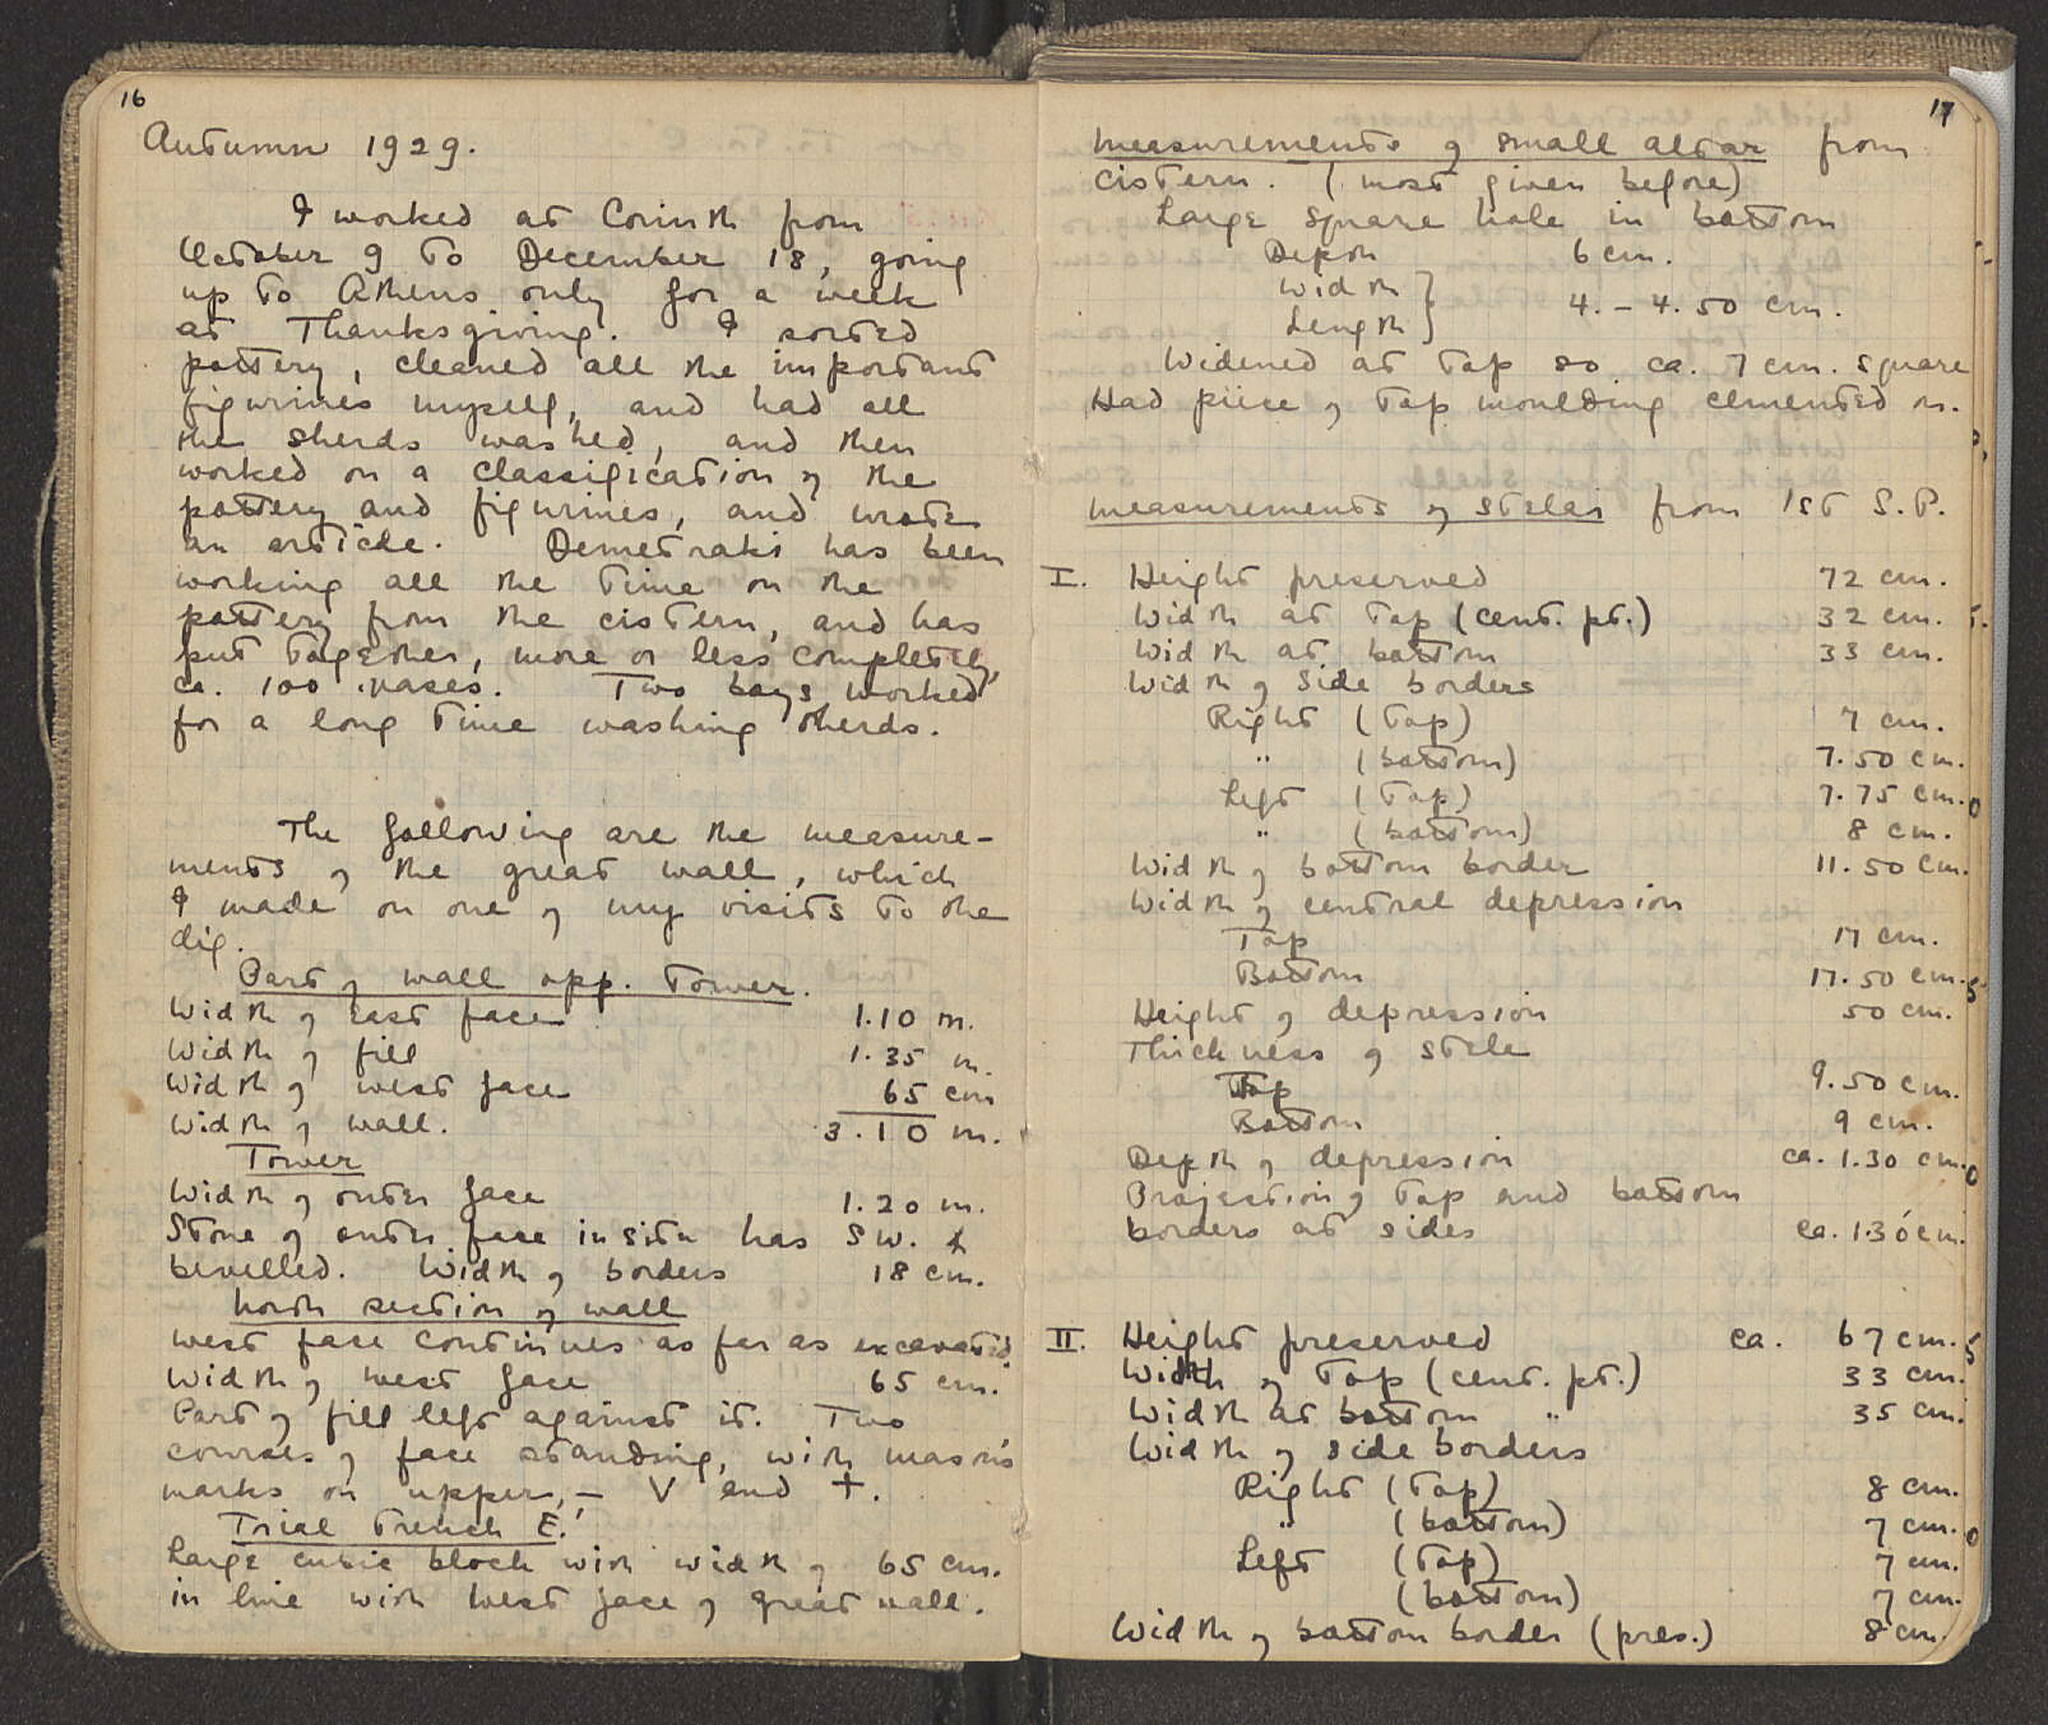 16
Autumn 1929.
I worked at Corinth from
October 9 to December 18, going
up to Athens only for a week
at Thanksgiving. I sorted
pottery, cleaned all the important
figurines myself, and had all
the sherds washed, and then
worked on a classification of the
pottery and figurines, and wrote
an article. Demetraki has been
working all the time on the
pottery from the cistern, and has
put together, more or less completely,
ca. 100 vases. Two boys worked
for a long time washing sherds.
The following are the measure-
ments of the great wall, which
I made on one of my visits to the
dig.
Part of wall opp. Tower.
Width of east face 1.10 m.
Width of fill 1.35 m.
Width of west face 65 cm
Width of wall. 3.10 m.
Tower
Width of outer face 1.20 m.
Stone of outer face in situ has SW.
bevelled. Width of borders 18 cm.
North section of wall
West face continues as far as excavated.
Width of west face 65 cm.
Part of fill left against it. Two
courses of face standing, with mason's
marks on upper, – V and +.
Trial Trench E.
Large cubic block with width of 65 cm.
in line with west face of great wall.
17
Measurements of small altar from
cistern. (most given before)
Large square hole in bottom
Depth 6 cm.
Width }
Length } 4. – 4.50 cm.
Widened at top so ca. 7 cm. square
Had piece of top moulding cemented on.
Measurements of stelai from 1st S.P.
I. Height preserved 72 cm.
Width at top (cent. pt.) 32 cm.
Width at bottom 33 cm.
Width of side borders
Right (top) 7 cm.
" (bottom) 7.50 cm.
Left (top) 7.75 cm.
" (bottom) 8 cm.
Width of bottom border 11.50 cm.
Width of central depression
Top 17 cm.
Bottom 17.50 cm.
Height of depression 50 cm.
Thickness of stele
Top 9.50 cm.
Bottom 9 cm.
Depth of depression ca. 1.30 cm.
Projection of top and bottom
borders at sides ca. 1.30 cm.
II. Height preserved ca. 67 cm.
Width of top (cent. pt.) 33 cm.
Width at bottom " 35 cm.
Width of side borders
Right (top) 8 cm.
" (bottom) 7 cm.
Left (top) 7 cm.
(bottom) 7 cm.
Width of bottom border (pres.) 8 cm.